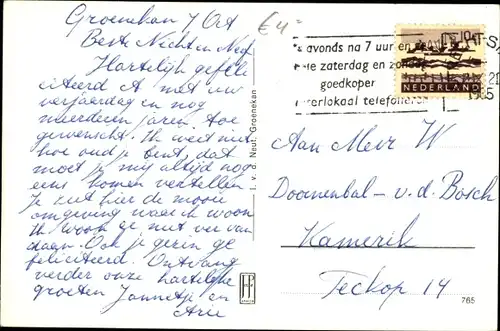 Groenekan 7 Oct
Beste Nicht en Neef
Hartelijk gefeli
citeerd A met uw
verjaardag en nog
meerdere jaren toe
gewenscht. Ik weet niet
hoe oud je bent, dat
moet je mij altijd nog
eens komen vertellen
Je ziet hier de mooie
omgeving waar ik woon
Ik woon ge niet ver van
daan. Ook je gezin ge
feliciteerd. Ontvang
verder onze hartelijke
groeten Jannetje en
Arie
€4
I. v. d. Neut, Groenekan
's avonds na 7 uur en
zaterdag en zondag
goedkoper
interlokaal telefoneren
NEDERLAND
1965
Aan Mevr W
Doornenbal - v. d. Bosch
Kamerik
Teckop 14
765